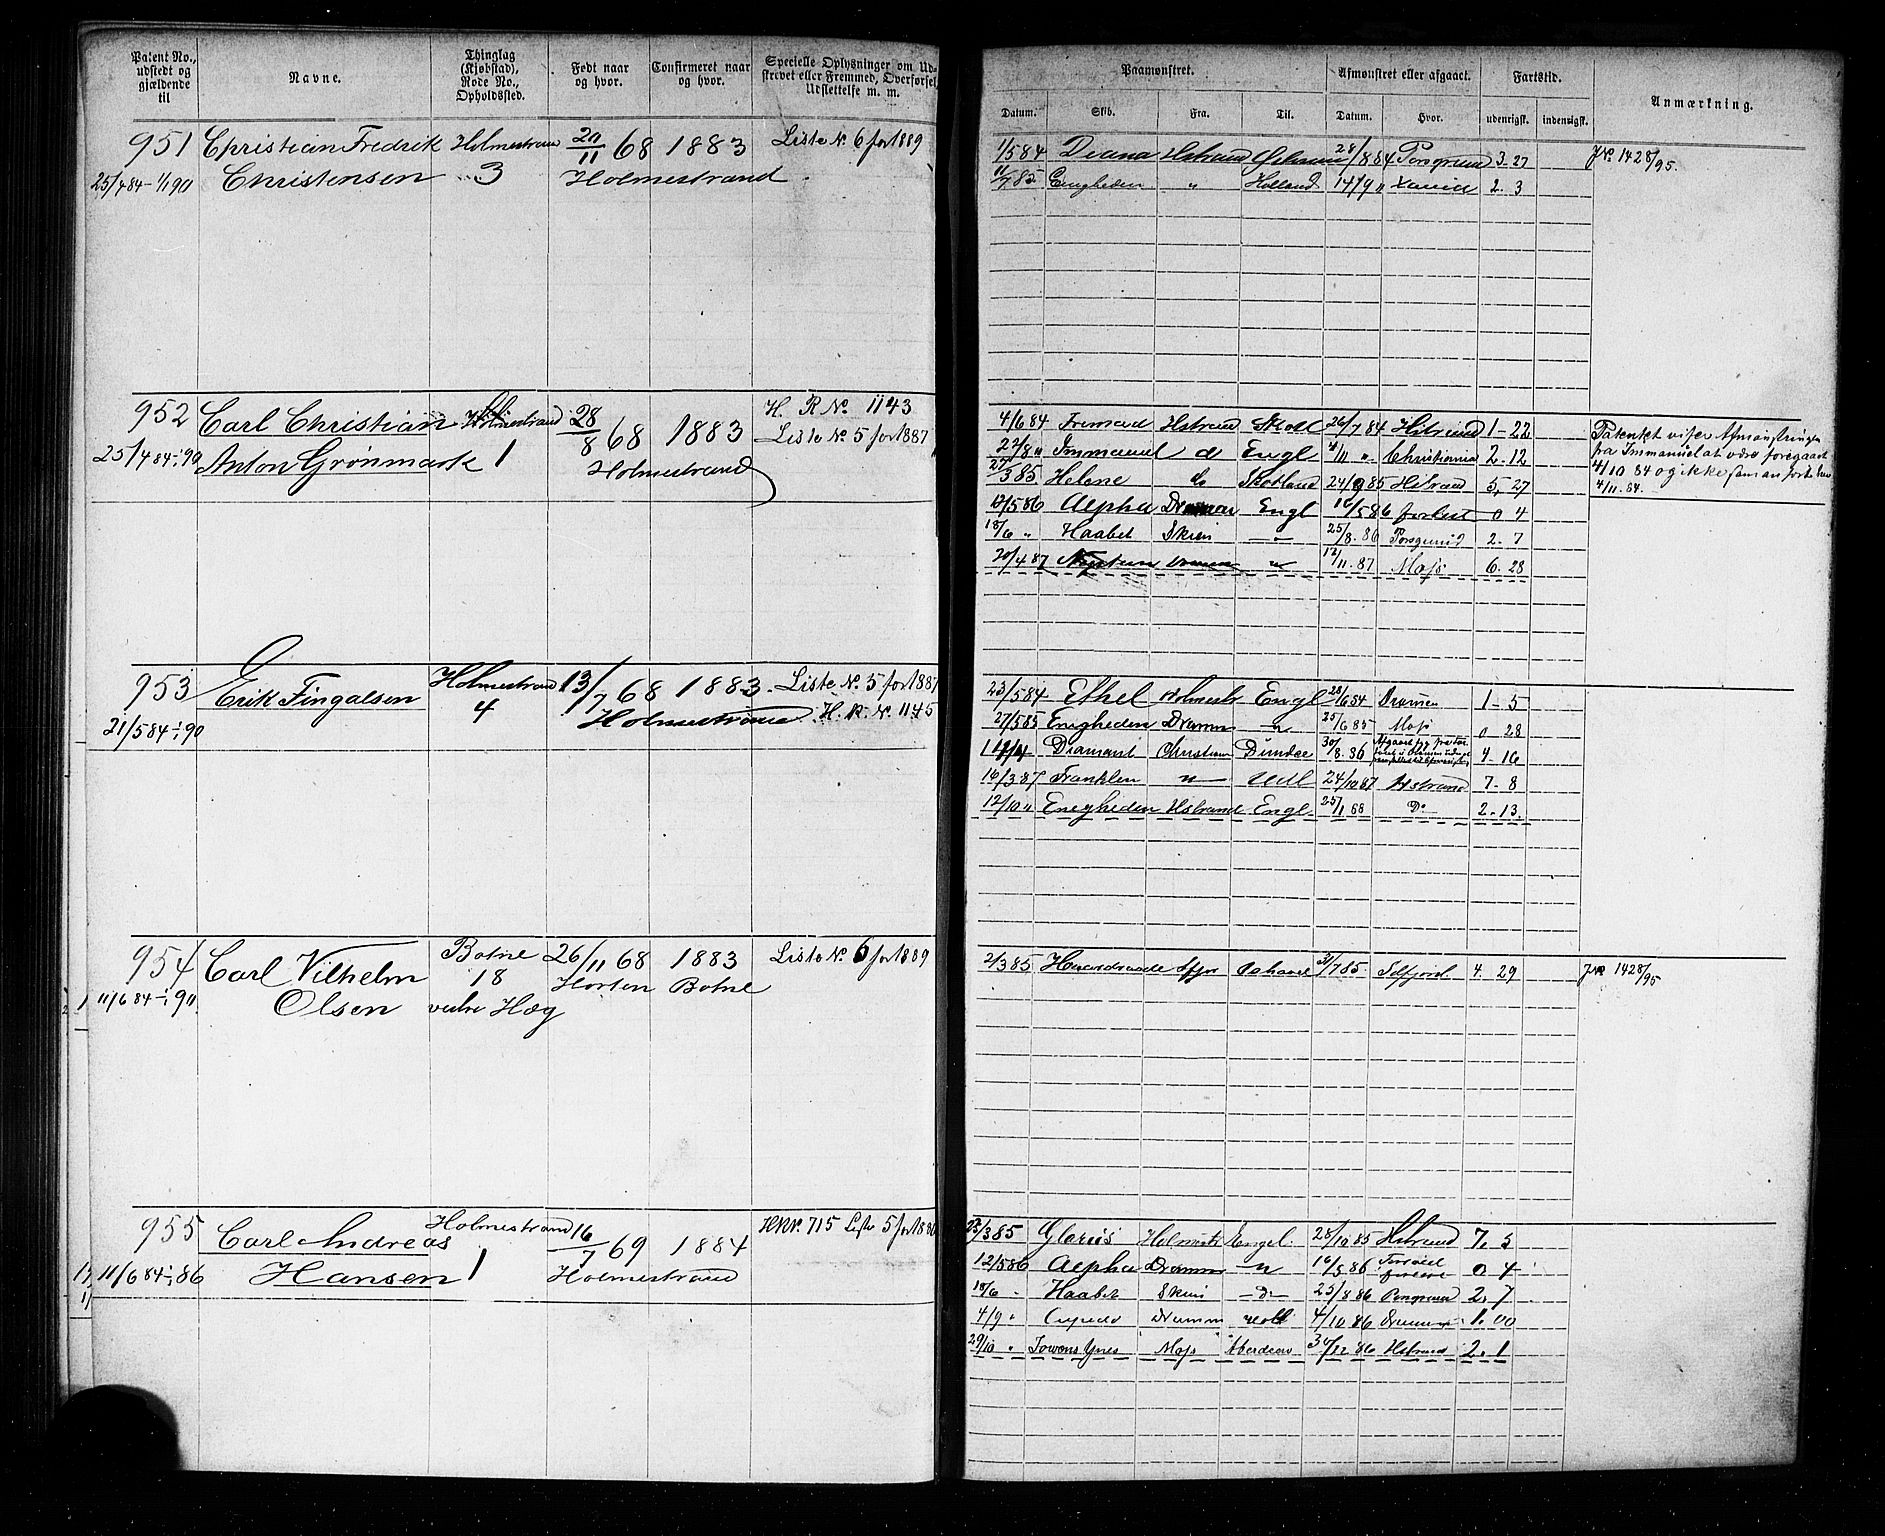 Patent No., udstedt og gjældende til
Navne.
Thinglag (Kjøbstad), Rode No., Opholdssted.
Født naar og hvor.
Confirmeret naar og hvor.
Specielle Oplysninger om Udskrevet eller Fremmed, Overførsel Udslettelse m. m.
Paamønstret.
Afmønstret eller afgaaet.
Fartstid.
Anmærkning.
Datum. Skib. Fra. Til. Datum. Hvor. udenrigsk. indenrigsk.
951 Christian Fredrik Holmestrand 20/11 68 1883 Liste No. 6 for 1889
25/4 84 - 1/1 90 Christensen 3 Holmestrand
1/5 84 Diana Hstrand 28/8 84 Porsgrund 3. 27 J No. 1428/95.
Enigheden " Holland 14/9 " 2. 3
952 Carl Christian Holmestrand 28/8 68 1883 H. R No. 1143
25/4 84 - 1/1 90 Anton Grønmark 1 Holmestrand Liste No. 5 for 1887
4/6 84 Hstrand 26/7 84 Hstrand 1 - 22
22/8 " Immanuel do Engl 4/11 ". Christiania 2. 12
27/3 85. Helene do Skotland 24/9 85 Hstrand 5, 27
12/5 86 Alpha Drammen Engl 16/5 86 forlist 0 4
18/6 " Haabet Skien — " — 25/8. 86 Porsgrund 2. 7
20/4 87 Neptun Drammen " 12/11. 87 Moss 6. 28
Patentet viser Afmønstringen
fra Immanuel at være foregaaet
4/10 84 og ikke som anført her
4/11. 84.
953 Erik Fingalsen Holmestrand 13/7 68 1883. Liste No. 5 for 1887
21/5 84 - 1/1 90 4 Holmestrand H. R. No. 1145
23/5 84 Ethel Holmestr Engl 28/6 84 Drammen 1 - 5
27/5 85 Enigheden Dramm " 25/6 85 Moss 0 28
Diamant Christian Dundee 30/8. 86 4. 16
16/3 87 Franklin " 24/10 87 Hstrand 7. 8
12/10 " Enigheden Hstrand Engl. 25/1 68 Do 2. 13.
954 Carl Vilhelm Botne 26/11 68 1883 Liste No. 6 for 1889
11/6 84 - 1/1 90. Olsen 18 Horten Botne
vestre Høg
2/3 85 31/7 85. 4. 29 J No 1428/95
955 Carl Andreas Holmestrand 16/7 69 1884 HRNo. 715 Liste 5 for 1886
11/6 84 - 1/1 86 Hansen 1 Holmestrand
25/3 85 Glarus Holmestr Engel. 28/10 85 Hstrand 7. 5
12/5 86 Alpha Dramm " 16/5 86 0 4
18/6 " Haabet Skien — Do — 25/8 86 Porsgrund 2. 7
4/9 " Cupido Dramm 4/10 86 Drammen 1. 00
29/10 " Moss Aberdeen 30/12 86 Hstrand 2. 1